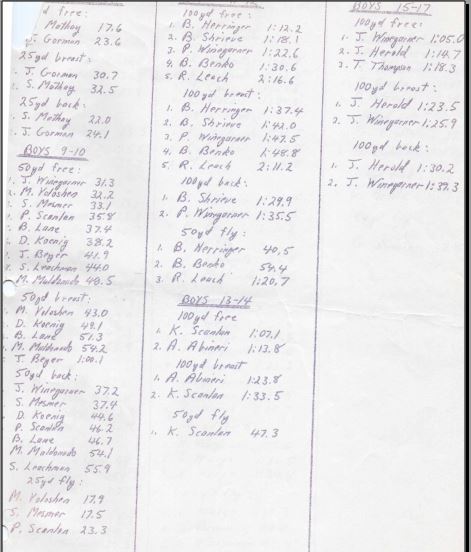 d free:
Mathay 17.6
J. Gorman 23.6
25yd breast:
J. Gorman 30.7
S. Mathay 32.5
25yd back:
S. Mathay 22.0
J. Gorman 24.1
BOYS 9-10
50yd free:
1. J. Winegarner 31.3
2. M. Voloshen 32.2
S. Mesmer 33.1
P. Scanlan 35.8
B. Lane 37.4
D. Koenig 38.2
J. Beyer 41.9
S. Leachman 44.0
M. Maldonado 48.5
50yd breast:
M. Voloshen 43.0
D. Koenig 49.1
B. Lane 51.3
M. Maldonado 54.2
J. Beyer 1:00.1
50yd back:
J. Winegarner 37.2
S. Mesmer 37.4
D. Koenig 44.6
P. Scanlan 46.2
B. Lane 46.7
M. Maldonado 54.1
S. Leachman 55.9
25yd fly:
M. Voloshen 17.9
S. Mesmer 17.5
P. Scanlan 23.3
100yd free:
1. B. Herringer 1:12.2
2. B. Shrieve 1:18.1
3. P. Winegarner 1:22.6
4. B. Benko 1:30.6
5. R. Leach 2:16.6
100yd breast:
1. B. Herringer 1:37.4
2. B. Shrieve 1:42.0
3. P. Winegarner 1:42.5
4. B. Benko 1:48.8
5. R. Leach 2:11.2
100yd back:
1. B. Shrieve 1:29.9
2. P. Winegarner 1:35.5
50yd fly:
1. B. Herringer 40.5
2. B. Benko 54.4
3. R. Leach 1:20.7
BOYS 13-14
100yd free
1. K. Scanlan 1:07.1
2. A. Abineri 1:13.8
100yd breast
1. A. Abineri 1:23.8
2. K. Scanlan 1:33.5
50yd fly
1. K. Scanlan 47.3
BOYS 15-17
100yd free:
1. J. Winegarner 1:05.0
2. J. Herold 1:14.7
3. T. Thompson 1:18.3
100yd breast:
1. J. Herold 1:23.5
2. J. Winegarner 1:25.9
100yd back:
1. J. Herold 1:30.2
2. J. Winegarner 1:39.3